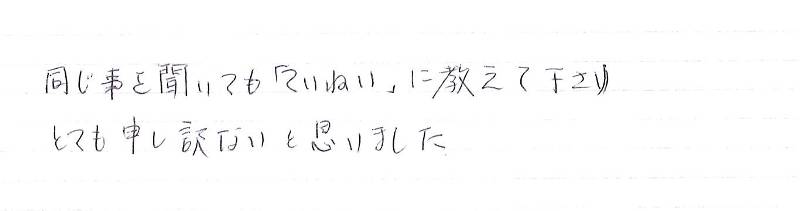 同じ事を聞いても「ていねい」に教えて下さり
とても申し訳ないと思いました